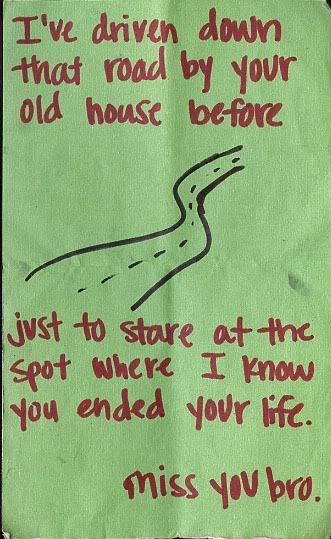 I've driven down
that road by your
old house before
just to stare at the
spot where I know
you ended your life.
miss you bro.